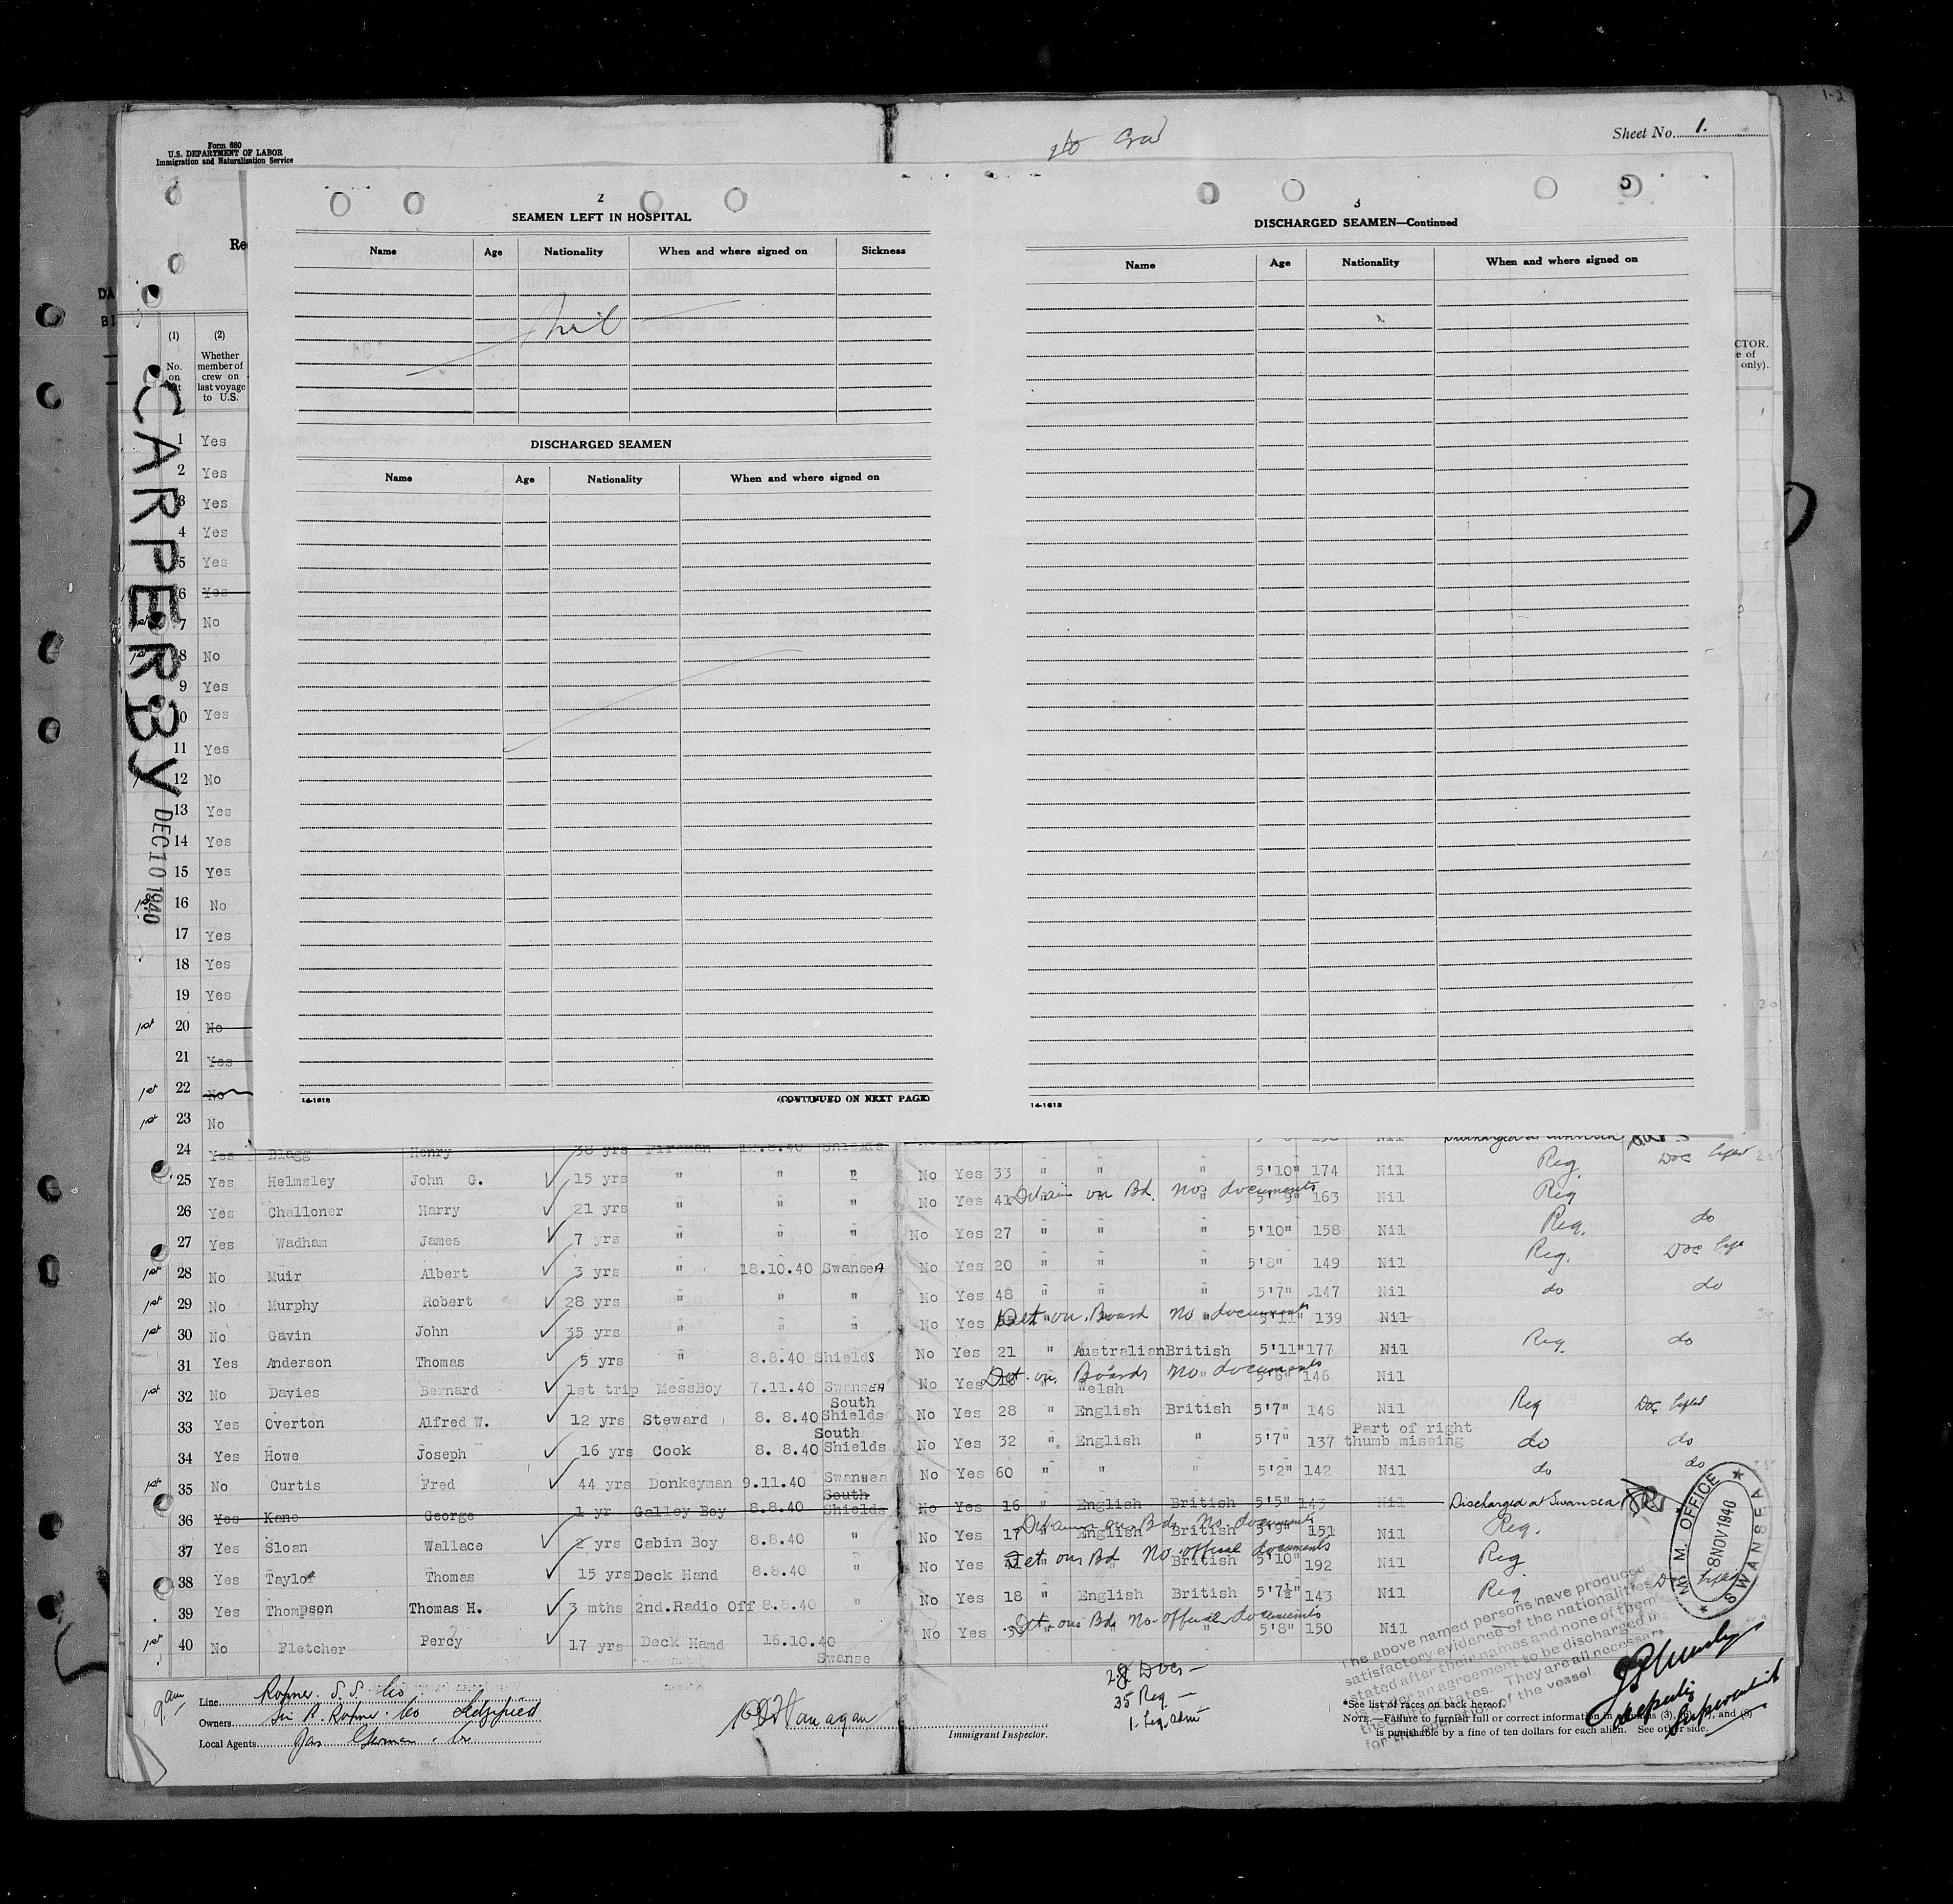 1-2
Form 680
U.S. DEPARTMENT OF LABOR
Immigration and Naturalization Service
Sheet No. 1.
Re
DA
BI
CARPERBY
DEC 10 1940
(1) (2)
No. on
Whether member of crew on last voyage to U.S.
CTOR.
e of
only).
2
SEAMEN LEFT IN HOSPITAL
Name Age Nationality When and where signed on Sickness
nil
DISCHARGED SEAMEN
Name Age Nationality When and where signed on
14-1618
(CONTINUED ON NEXT PAGE)
3
DISCHARGED SEAMEN—Continued
Name Age Nationality When and where signed on
14-1618
1 Yes
2 Yes
3 Yes
4 Yes
5 Yes
6 Yes
1st 7 No
1st 8 No
9 Yes
10 Yes
11 Yes
12 No
13 Yes
14 Yes
15 Yes
1st 16 No
17 Yes
18 Yes
19 Yes
1st 20 No
21 Yes
1st 22 No
1st 23 No
24 Yes Blagg Henry 38 yrs Fireman Shields
25 Yes Helmsley John G. 15 yrs " " " No Yes 33 " " " 5'10" 174 Nil Req.
26 Yes Challoner Harry 21 yrs " " " No Yes 41 Detain on Bd. No documents 5'9" 163 Nil Req
27 Yes Wadham James 7 yrs " " " No Yes 27 " " " 5'10" 158 Nil Req. do
1st 28 No Muir Albert 3 yrs " 18.10.40 Swansea No Yes 20 " " " 5'8" 149 Nil Req.
1st 29 No Murphy Robert 28 yrs " " " No Yes 48 " " " 5'7" 147 Nil do do
1st 30 No Gavin John 35 yrs " " " No Yes Det on Board No documents 5'11" 139 Nil
31 Yes Anderson Thomas 5 yrs " 8.8.40 Shields No Yes 21 " Australian British 5'11" 177 Nil Req. do
1st 32 No Davies Bernard 1st trip MessBoy 7.11.40 Swansea No Yes Det on Board No documents Welsh 146 Nil
33 Yes Overton Alfred W. 12 yrs Steward 8. 8.40 South Shields No Yes 28 " English British 5'7" 146 Nil Req
34 Yes Howe Joseph 16 yrs Cook 8. 8.40 South Shields No Yes 32 " English " 5'7" 137 Part of right thumb missing do do
1st 35 No Curtis Fred 44 yrs Donkeyman 9.11.40 Swansea No Yes 60 " " " 5'2" 142 Nil do do
36 Yes Kane George 1 yr Galley Boy 8.8.40 South Shields No Yes 16 " English British 5'5" 143 Nil Discharged at Swansea
37 Yes Sloan Wallace 2 yrs Cabin Boy 8.8.40 " No Yes 17 Detain on Bd. No documents English British 5'9" 151 Nil Req.
38 Yes Taylor Thomas 15 yrs Deck Hand 8.8.40 " No Yes Det on Bd No official documents British 5'10" 192 Nil Req
39 Yes Thompson Thomas H. 3 mths 2nd.Radio Off 8.8.40 " No Yes 18 " English British 5'7½" 143 Nil Req
1st 40 No Fletcher Percy 17 yrs Deck Hand 16.10.40 Swanse No Yes Det on Bd No official documents " 5'8" 150 Nil
M. M. OFFICE
18 NOV 1940
SWANSEA
The above named persons have produced
satisfactory evidence of the nationalities
stated after their names and none of them
an agreement to be discharged in
States. They are all necessary
for the operation of the vessel.
Line Ropner. S.S. Co
Owners Sir R. Ropner. Co
Local Agents Jas German Co
Immigrant Inspector.
28 Docs —
35 Req —
*See list of races on back hereof.
NOTE.—Failure to furnish full or correct information in columns (3), (5), (7), and (8)
is punishable by a fine of ten dollars for each alien. See other side.
Deputy
Superintendent